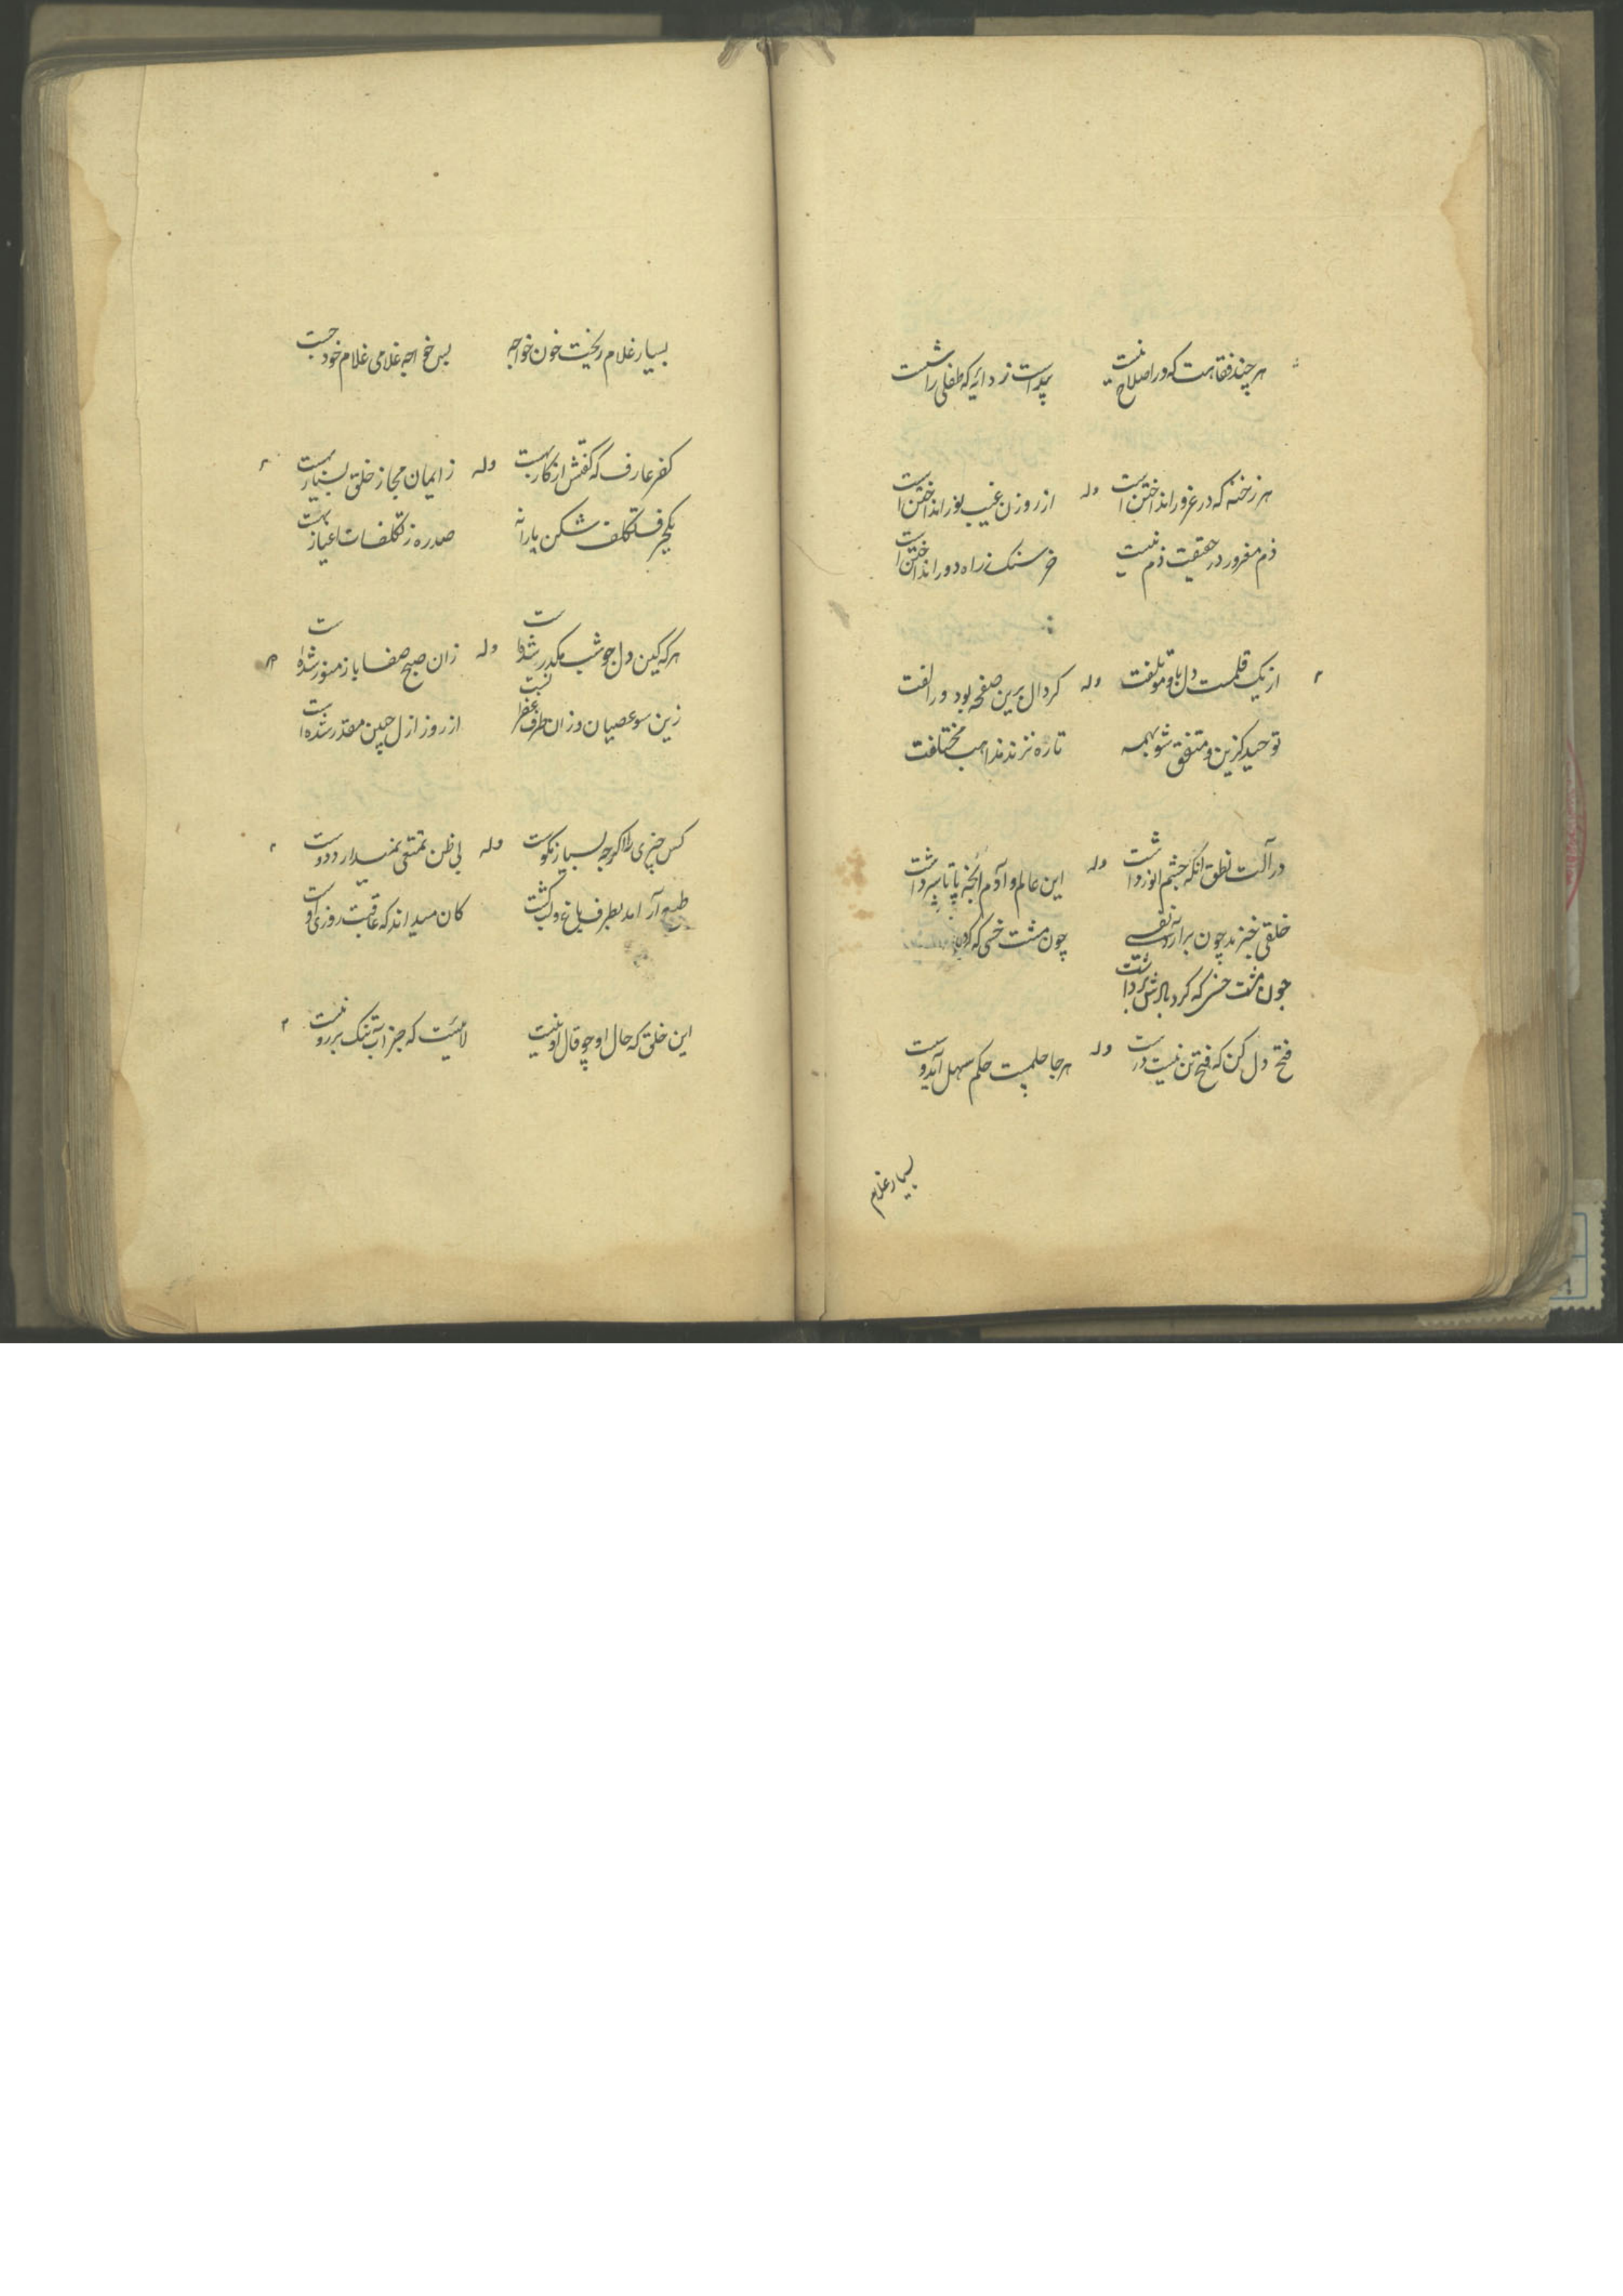 هر چند فقاهت که در اصلاح نیست
پیداست ز دایه که طفلی را
هر رخنه که در غرور انداختن است وله از روزن غیب نور انداختن است
ذم مغرور در حقیقت ذم نیست خرسنک ز راه دور انداختن است
از یک قلمست دل با و مؤتلفت وله کر دال برین صفحه بود ور الفت
توحید کزین و متفق شو بهمه تا ره نزند مذاهب مختلفت
در آلت نطق آنکه چشم انور داشت وله این عالم و آدم
خلقی خیزند چون برآرد نفسی چون مشت خسی که
چون مشت خسی که کرد بادش برداشت
فتح دل کن که فتح تن نیست درست وله هر جا حکم سهل آید
بسیار غلام
بسیار غلام ریخت خون خواجه بس خواجه غلامی غلام خود جست
کفر عارف که کفتش انکاریست وله ز ایمان مجاز خلق بسیار بهست
یکحرف تکلف شکن یارانه صد ره ز تکلفات اغیار بهست
هر که کین دل چو شب مکدر شده است وله زان صبح صفا باز منور شده است
زین سو عصیان و زان طرف از روز ازل چنین مقدر شده است
کس چیزی را اکرچه بسیار نکوست وله بی ظن تمتعی نمیدارد دوست
آرامد بطرف باغ و لب کشت کان میداند که عاقبت روزی اوست
این خلق که حال او چو قال او نیست که جز آب تنک بر رو نیست